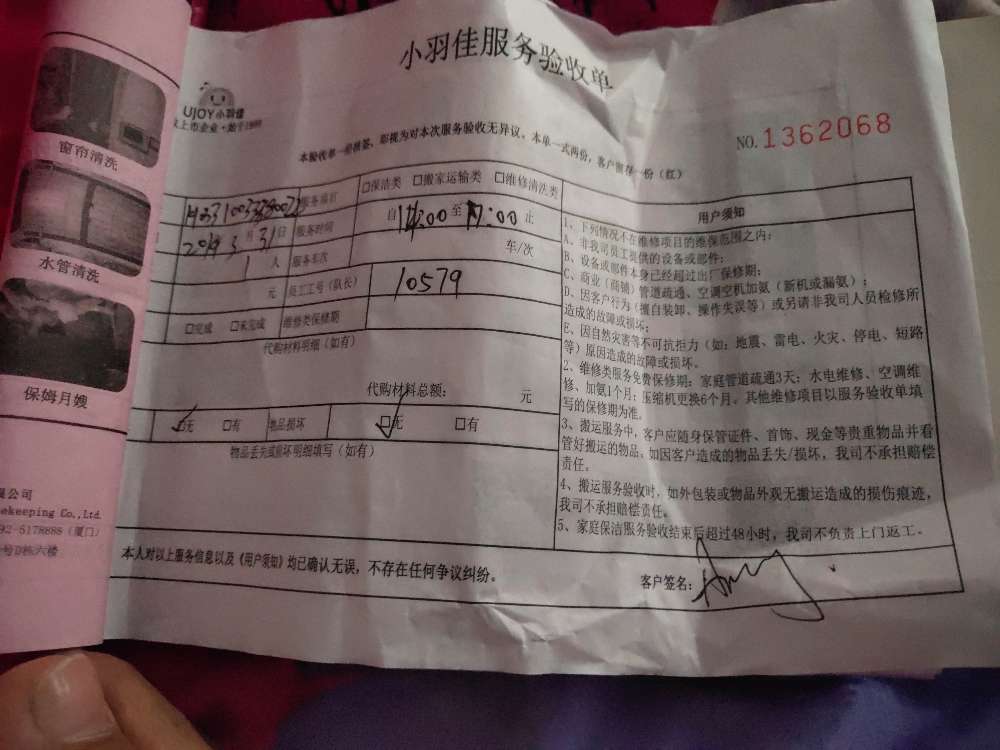 小羽佳服务验收单
UJOY小羽佳
上市企业·始于1999
NO.1362068
本验收单一经接签，即视为对本次服务验收无异议。本单一式两份，客户留存一份（红）
窗帘清洗
水管清洗
保姆月嫂
服务项目 □保洁类 □搬家运输类 □维修清洗类
3月31日 服务时间 自14:00至17:00止
1人 服务车次 车/次
元 员工工号（队长） 10579
□完成 □未完成 维修类保修期
代购材料明细（如有）
代购材料总额： 元
□无 □有 物品损坏 □无 □有
物品丢失或损坏明细填写（如有）
用户须知
1、下列情况不在维修项目的维保范围之内：
A、非我司员工提供的设备或部件；
B、设备或部件本身已经超过出厂保修期；
C、商业（商铺）管道疏通、空调空机加氨（新机或漏氨）；
D、因客户行为（擅自装卸、操作失误等）或另请非我司人员检修所
造成的故障或损坏；
E、因自然灾害等不可抗拒力（如：地震、雷电、火灾、停电、短路
等）原因造成的故障或损坏。
2、维修类服务免费保修期：家庭管道疏通3天；水电维修、空调维
修、加氨1个月；压缩机更换6个月。其他维修项目以服务验收单填
写的保修期为准。
3、搬运服务中，客户应随身保管证件、首饰、现金等贵重物品并看
管好搬运的物品，如因客户造成的物品丢失/损坏，我司不承担赔偿
责任。
4、搬运服务验收时，如外包装或物品外观无搬运造成的损伤痕迹，
我司不承担赔偿责任。
5、家庭保洁服务验收结束后超过48小时，我司不负责上门返工。
本人对以上服务信息以及《用户须知》均已确认无误，不存在任何争议纠纷。
客户签名：
限公司
ekeeping Co.,Ltd.
92-5178888（厦门）
号D栋六楼